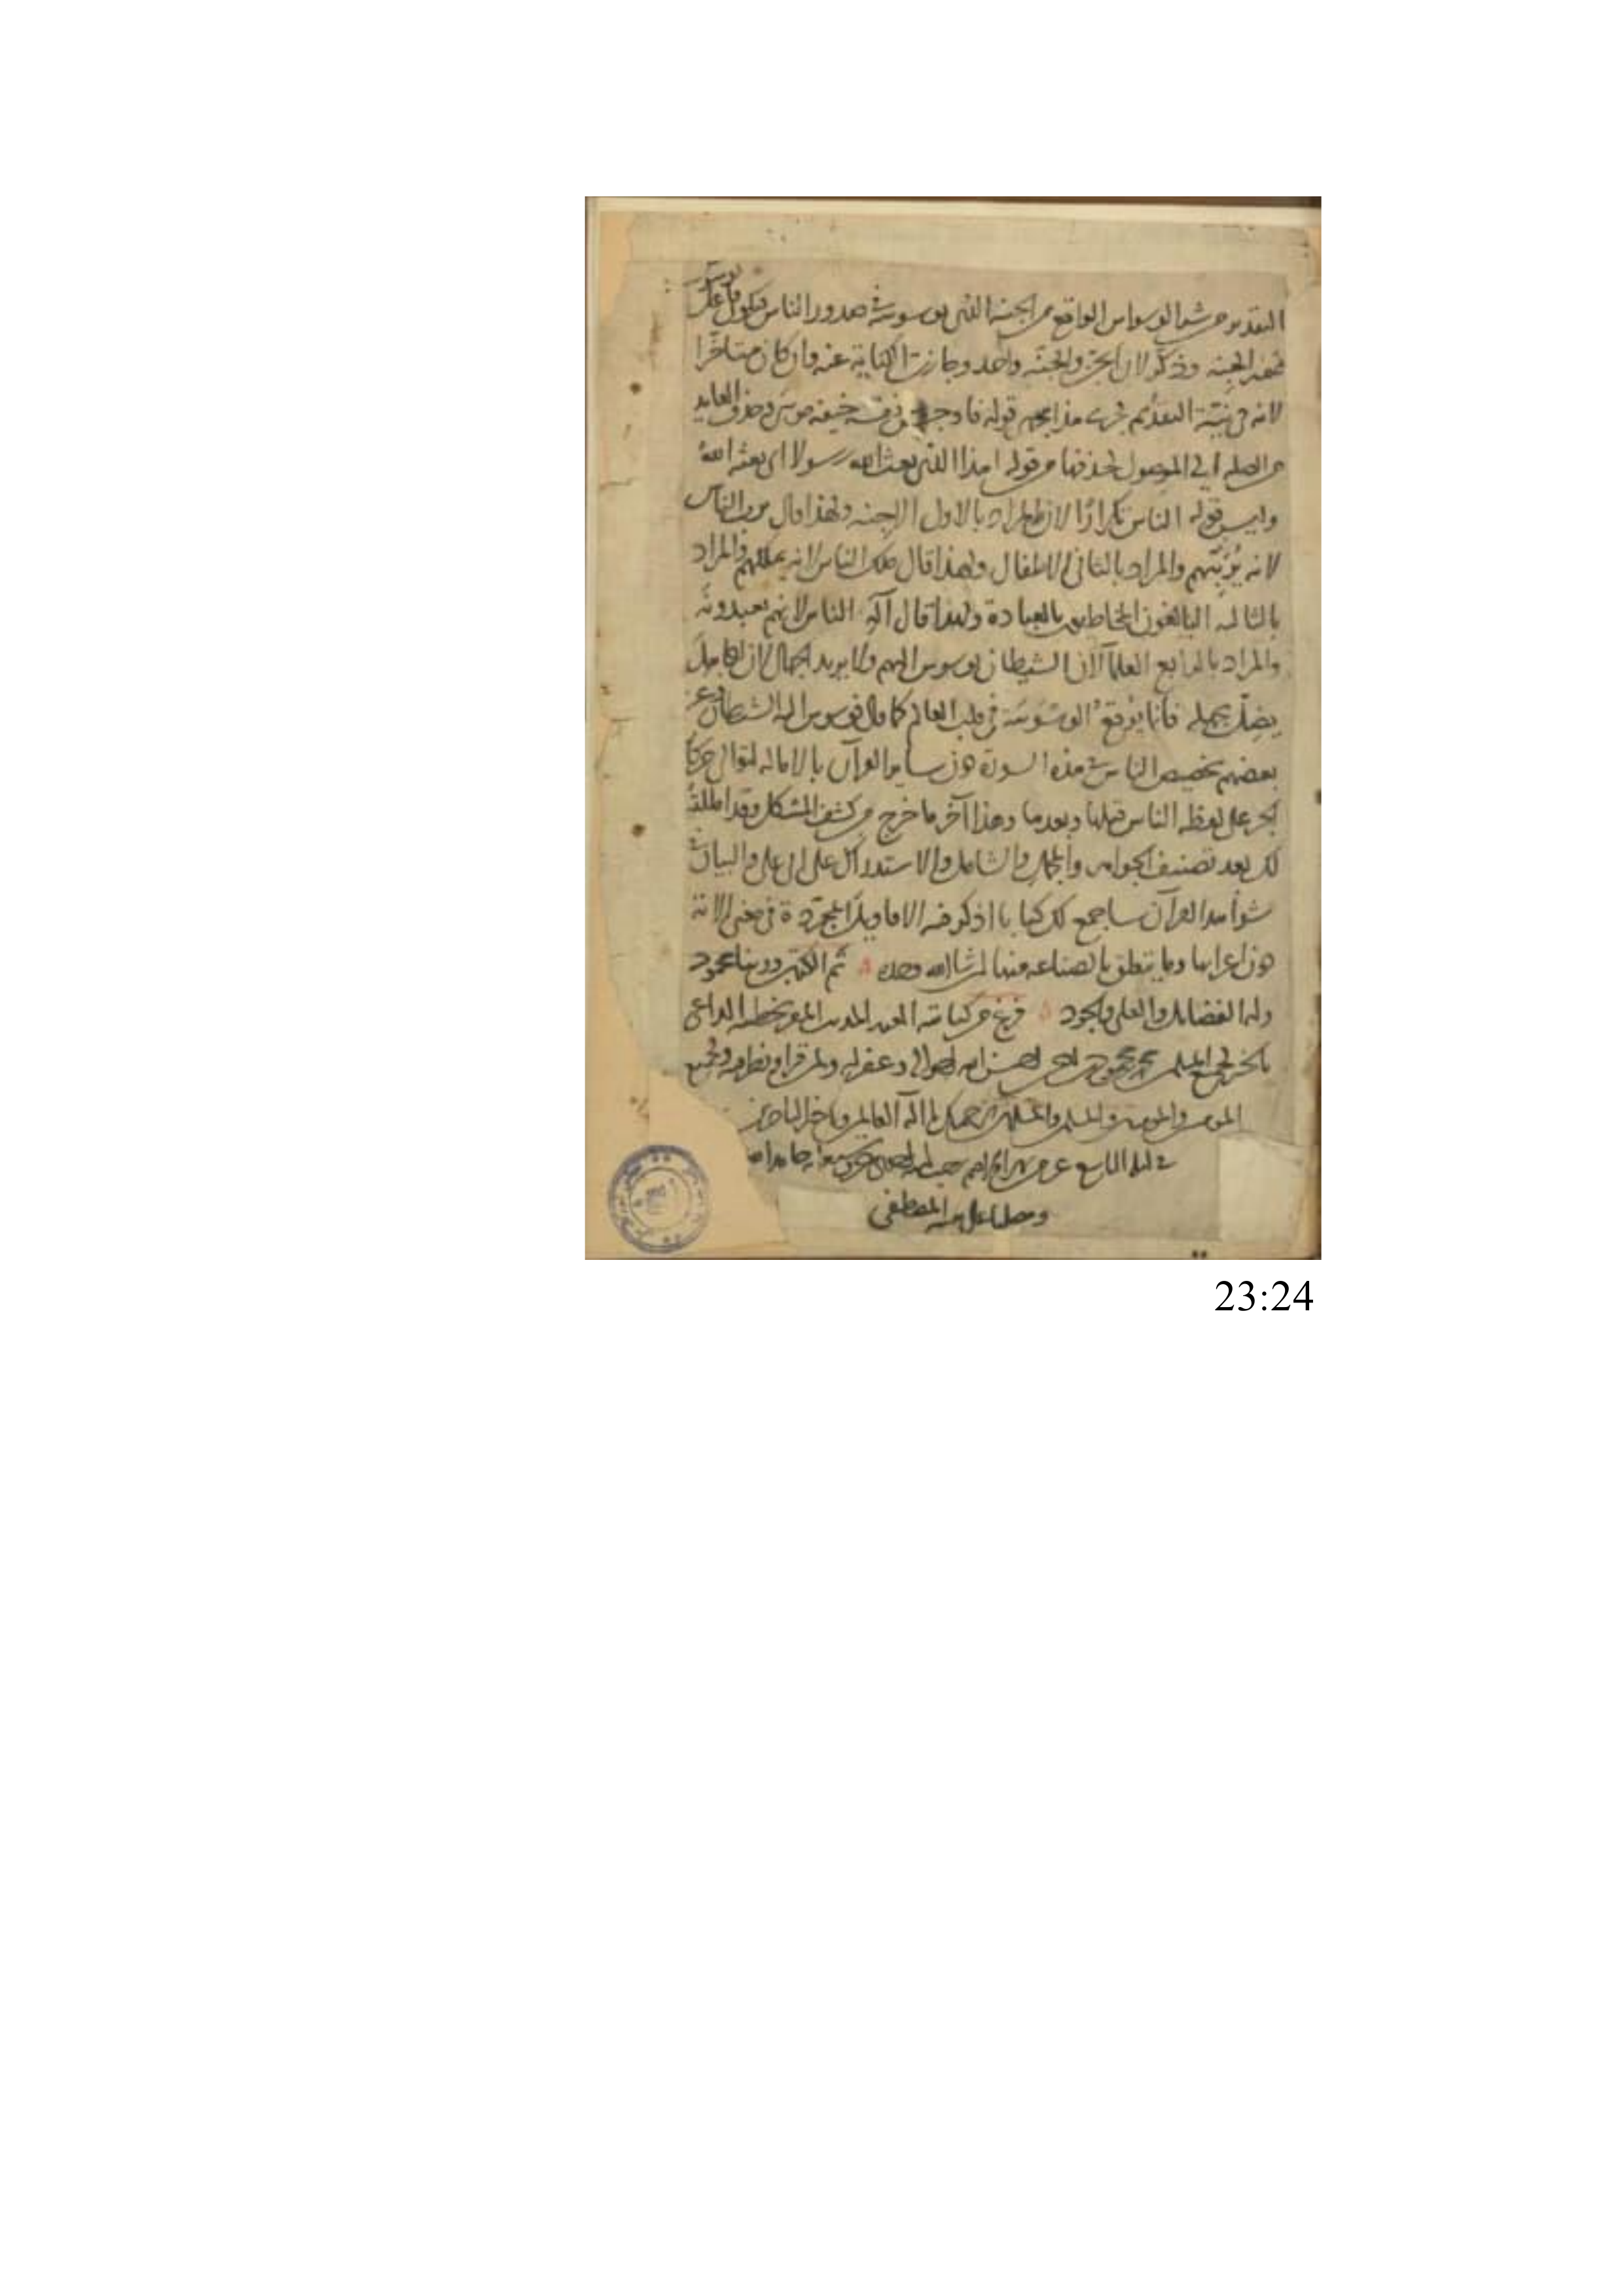 التقدير من شر الوسواس الواقع من الجنة الذي يوسوس في صدور الناس فيكون فاعل يوسوس
ضمير الجنة وذكر لان الجن والجنة واحد وجازت الكناية عنه وان كان متاخرا
لانه في نية التقديم فجرى هذا مجرى قوله فاوجس في نفسه خيفة موسى وحذف العايد
من الصلة الى الموصول كحذفها من قوله اهذا الذي بعث الله رسولا اي بعثه الله
وليس قوله الناس تكرارا لان المراد بالاول الاجنة ولهذا قال برب الناس
لانه يربيهم والمراد بالثاني الاطفال ولهذا قال ملك الناس لانه يملكهم والمراد
بالثالث البالغون المخاطبون بالعبادة ولهذا قال اله الناس لانهم يعبدونه
والمراد بالرابع العلمآ لان الشيطان يوسوس اليهم ولا يريد الجهال لان الجاهل
يضل بجهله فانما يوقع الوسوسة في قلب العالم كما قال فوسوس اليه الشيطان وعن
بعضهم تخصيص الناس في هذه السورة دون ساير القرآن بالامالة لتوالي حركات
الجر على لفظة الناس قبلها وبعدها وهذا آخر ما خرج من كشف المشكل وقد امللته
لك بعد تصنيف الجواهر والمجمل والشامل والاستدراك على ابي علي والبيان في
شواهد القرآن ساجمع لك كتابا اذكر فيه الاقاويل المجردة في معنى الآية
دون اعرابها وما يتعلق بالصناعة منها ان شا الله وحده تم الكتاب وربنا محمود
وله الفضايل والعلى والجود فرغ من كتابته العبد المذنب المقر بخطيئته الداعي
بالخير لجميع المسلمين محمد بن محمود بن
المومنين والمومنات والمسلمين والمسلمات برحمتك يا اله العالمين وياخير الناصرين
في ليلة التاسع
ومصليا على نبيه المصطفى
23:24